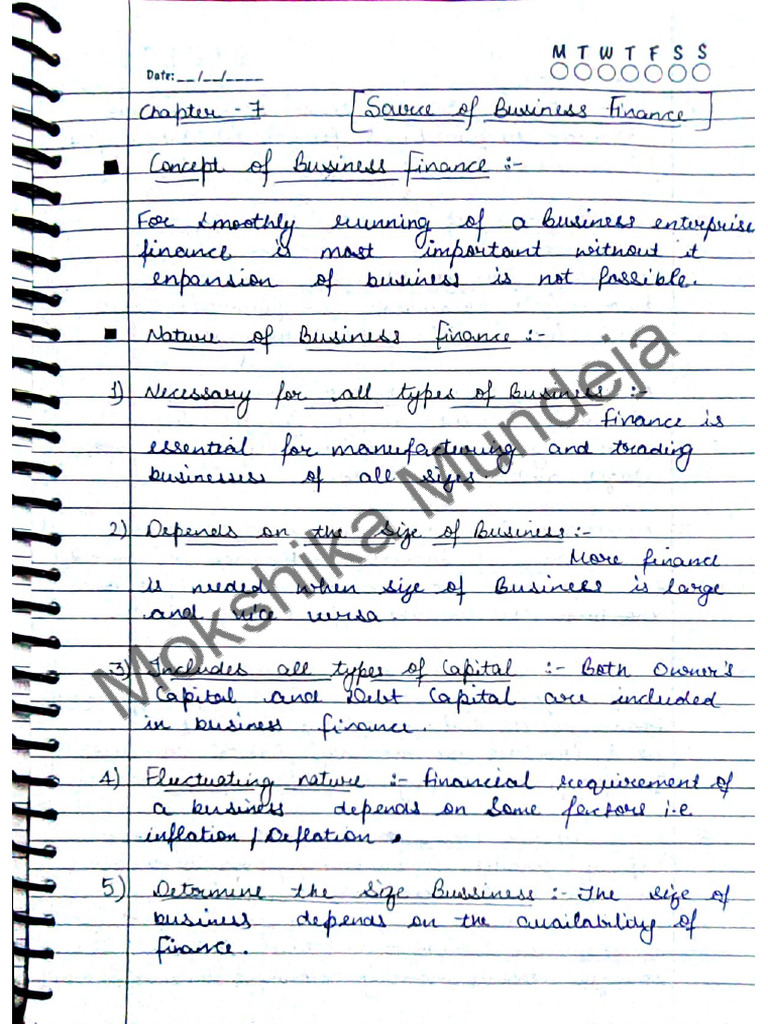 M T W T F S S
Date: __/__/____
Chapter - 7 [Source of Business Finance]
■ Concept of Business Finance :-
For smoothly running of a business enterprise
finance is most important without it
enpansion of business is not possible.
■ Nature of Business Finance :-
1) Necessary for all types of Business :-
finance is
essential for manufacturing and trading
businesses of all sizes.
2) Depends on the size of Business :-
More finance
is needed when size of Business is large
and vice versa.
3) Includes all types of Capital :- Both Owner's
Capital and Debt Capital are included
in business finance.
4) Fluctuating nature :- financial requirement of
a business depends on some factors i.e
inflation / Deflation .
5) Determine the size Bussiness :- The size of
business depends on the availability of
finance.
Mokshika Mundeja